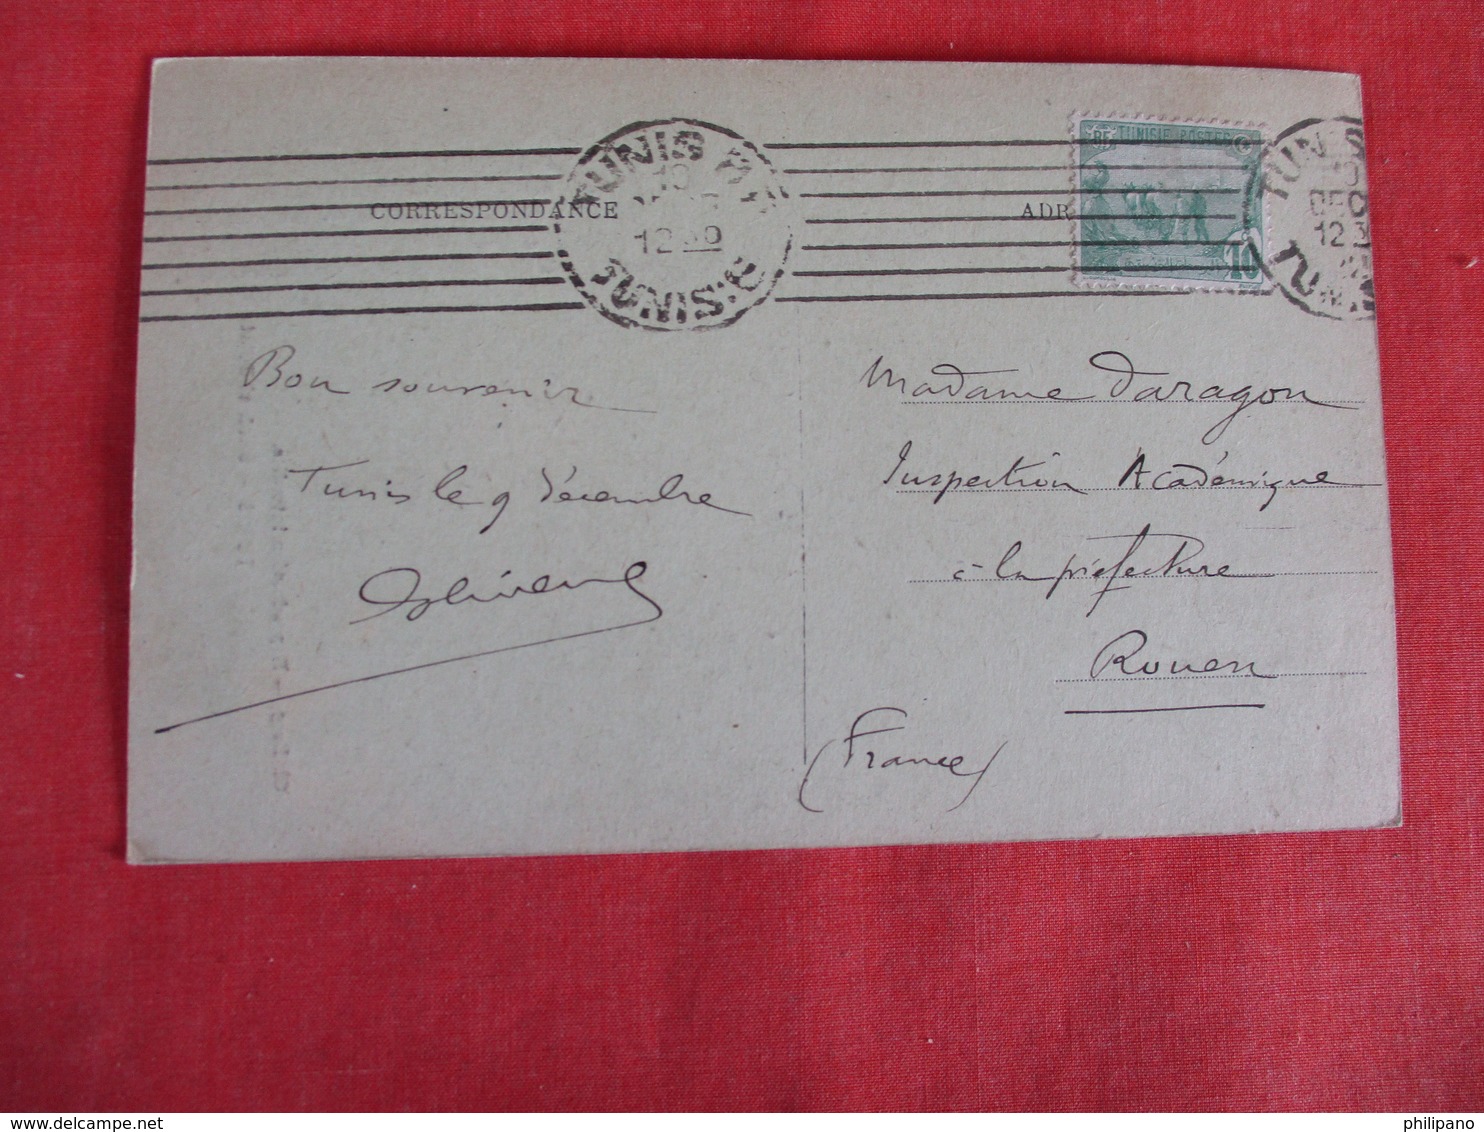 TUNIS
10
12 30
TUNISIE
CORRESPONDANCE
ADR
RF TUNISIE POSTES
10
TUNIS
10
DEC
12 3
Bon souvenir
Tunis le 9 décembre
Madame Daragon
Inspection Académique
à la préfecture
Rouen
(France)
philipano